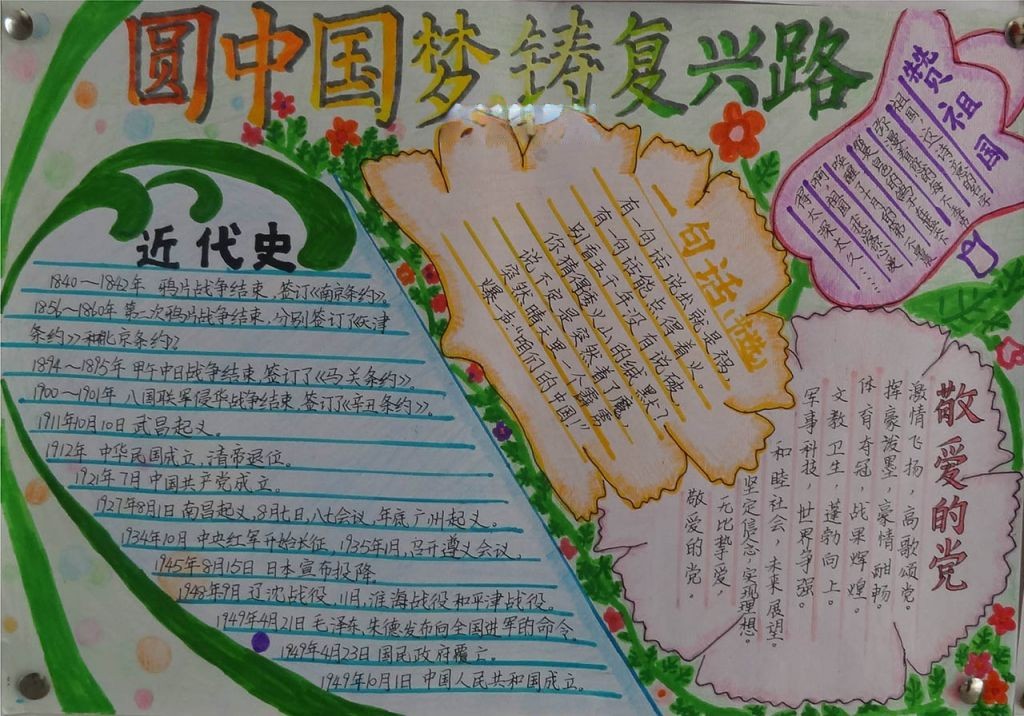 圆中国梦铸复兴路
近代史
1840～1842年 鸦片战争结束,签订《南京条约》。
1856～1860年 第二次鸦片战争结束,分别签订了《天津
条约》和《北京条约》
1894～1895年 甲午中日战争结束,签订了《马关条约》。
1900～1901年 八国联军侵华战争结束,签订了《辛丑条约》。
1911年10月10日 武昌起义。
1912年 中华民国成立,清帝退位。
1921年7月 中国共产党成立。
1927年8月1日 南昌起义,8月七日,八七会议,年底广州起义。
1934年10月 中央红军开始长征,1935年1月,召开遵义会议。
1945年8月15日 日本宣布投降
1948年9月 辽沈战役,11月,淮海战役和平津战役。
1949年4月21日 毛泽东,朱德发布向全国进军的命令。
1949年4月23日 国民政府覆亡。
1949年10月1日 中国人民共和国成立。
一句话
有一句话说出就是祸,
有一句话能点得着火。
别看五千年没有说破,
你猜得透火山的缄默?
说不定是突然着了魔,
突然晴天里一个霹雳
爆一声:“咱们的中国!”
赞祖国
敬爱的党
激情飞扬,高歌颂党。
挥豪泼墨,豪情酣畅。
体育夺冠,战果辉煌。
文教卫生,蓬勃向上。
军事科技,世界争强。
和睦社会,未来展望。
坚定信念,实现理想。
无比挚爱,
敬爱的党。